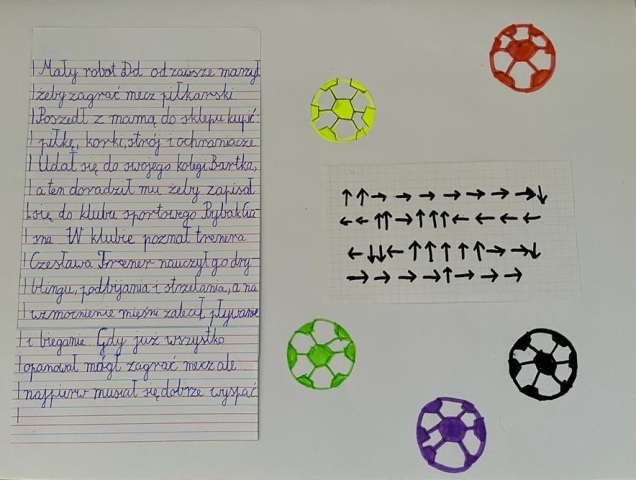 Mały robot Dd od zawsze marzył
żeby zagrać mecz piłkarski
Poszedł z mamą do sklepu kupić
piłkę, korki, strój i ochraniacze
Udał się do swojego kolegi Bartka,
a ten doradził mu żeby zapisał
się do klubu sportowego
W klubie poznał trenera
Czesława Trener nauczył go dry
blingu, podbijania i strzelania, a na
wzmocnienie mięśni zalecił pływanie
i bieganie Gdy już wszystko
opanował mógł zagrać mecz ale
najpierw musiał się dobrze wyspać
↑↑→→→→→→→↓
←←↑↑→↑↑↑←←←←
←↓↓←↑↑↑↑↑→→↓
→→→→↑→→→